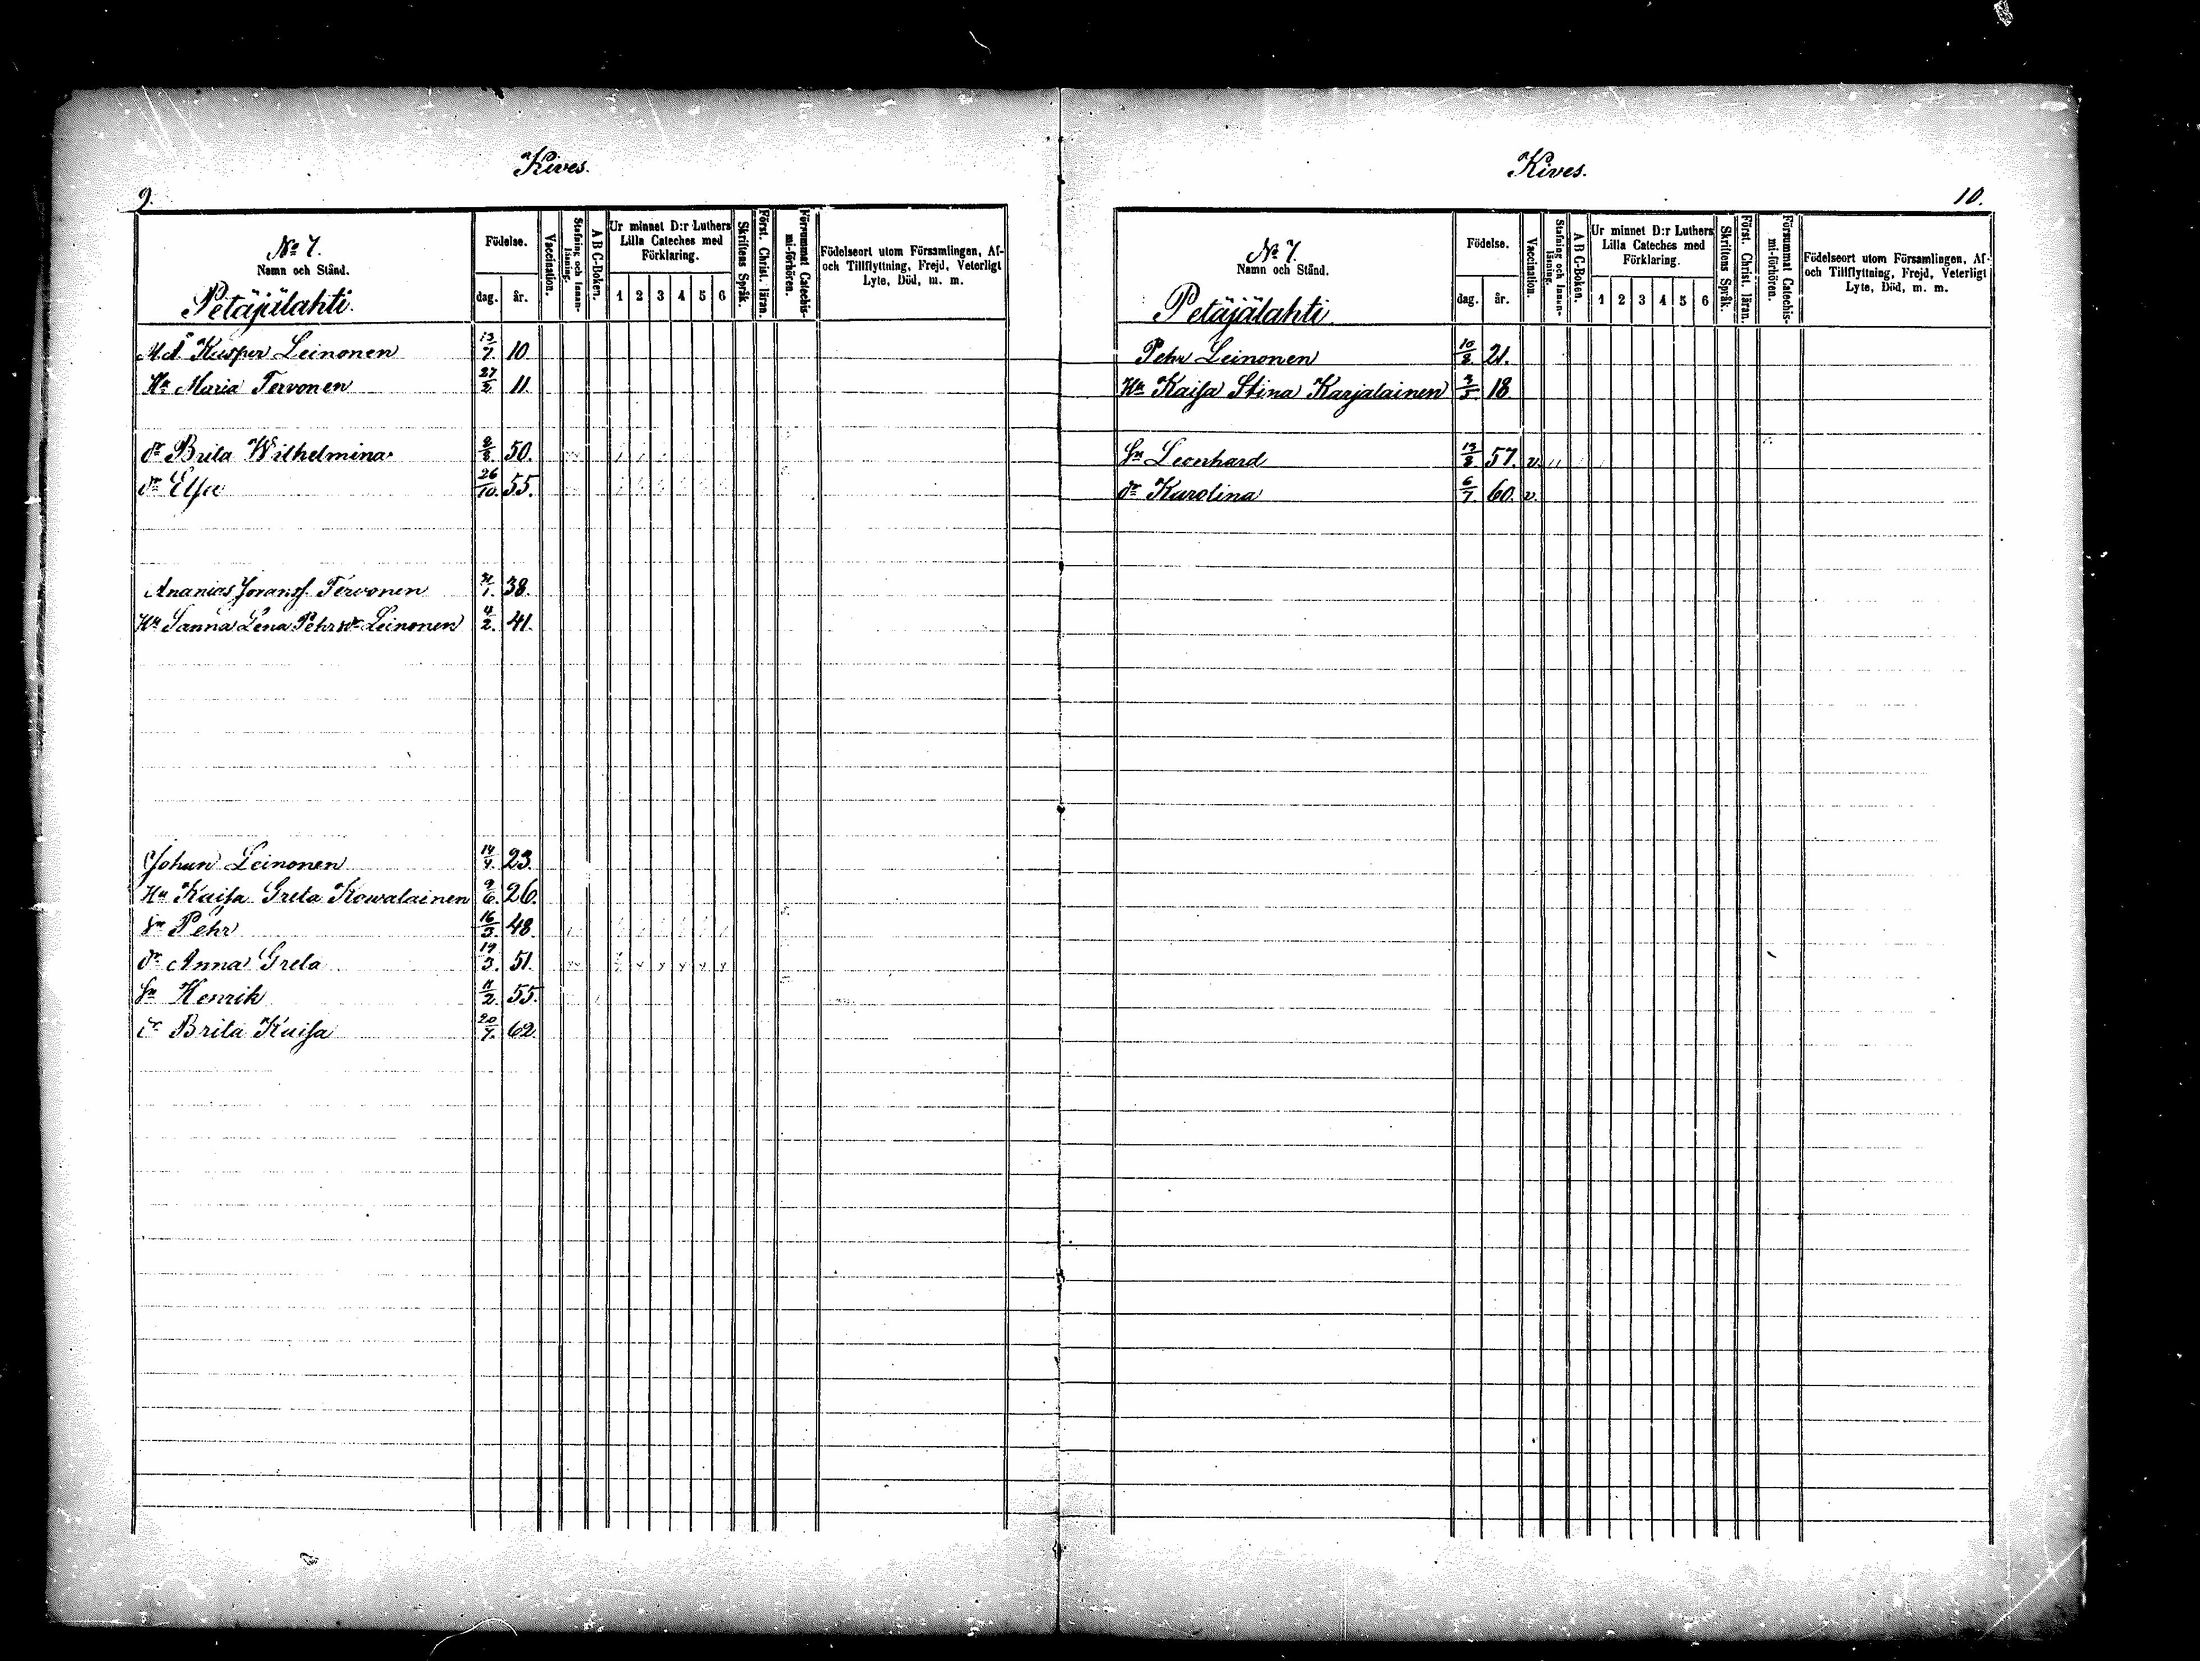 Kives.
9.
No 7.
Namn och Stånd.
Petäjälahti.
Födelse.
dag. år.
Vaccination.
Stafning och Innan-
läsning.
A B C-Boken.
Ur minnet D:r Luthers
Lilla Cateches med
Förklaring.
1 2 3 4 5 6
Skriftens Språk.
Först. Christ. läran.
Försummat Catechis-
mi-förhören.
Födelseort utom Församlingen, Af-
och Tillflyttning, Frejd, Veterligt
Lyte, Död, m. m.
Kasper Leinonen 13/7. 10
Hu Maria Tervonen 27/5. 11.
dr Brita Wilhelmina 50.
dr Elsa 26/10. 55.
Ananias Joransf. Tervonen 38.
Hu Sanna Lena Pehrsdr Leinonen 4/2. 41.
Johan Leinonen 14/4. 23.
Hu Kaisa Greta Kowalainen 9/6. 26.
Sn Pehr 16/3. 48.
dr Anna Greta 19/3. 51.
Sn Henrik 11/2. 55.
dr Brita Kaisa 20/7. 62.
Kives.
10.
No 7.
Namn och Stånd.
Petäjälahti
Födelse.
dag. år.
Vaccination.
Stafning och Innan-
läsning.
A B C-Boken.
Ur minnet D:r Luthers
Lilla Cateches med
Förklaring.
1 2 3 4 5 6
Skriftens Språk.
Först. Christ. läran.
Försummat Catechis-
mi-förhören.
Födelseort utom Församlingen, Af-
och Tillflyttning, Frejd, Veterligt
Lyte, Död, m. m.
Pehr Leinonen 10/8. 21.
Hu Kaisa Stina Karjalainen 18
Sn Leonhard 13/8. 57. v.
dr Karolina 6/7. 60. v.